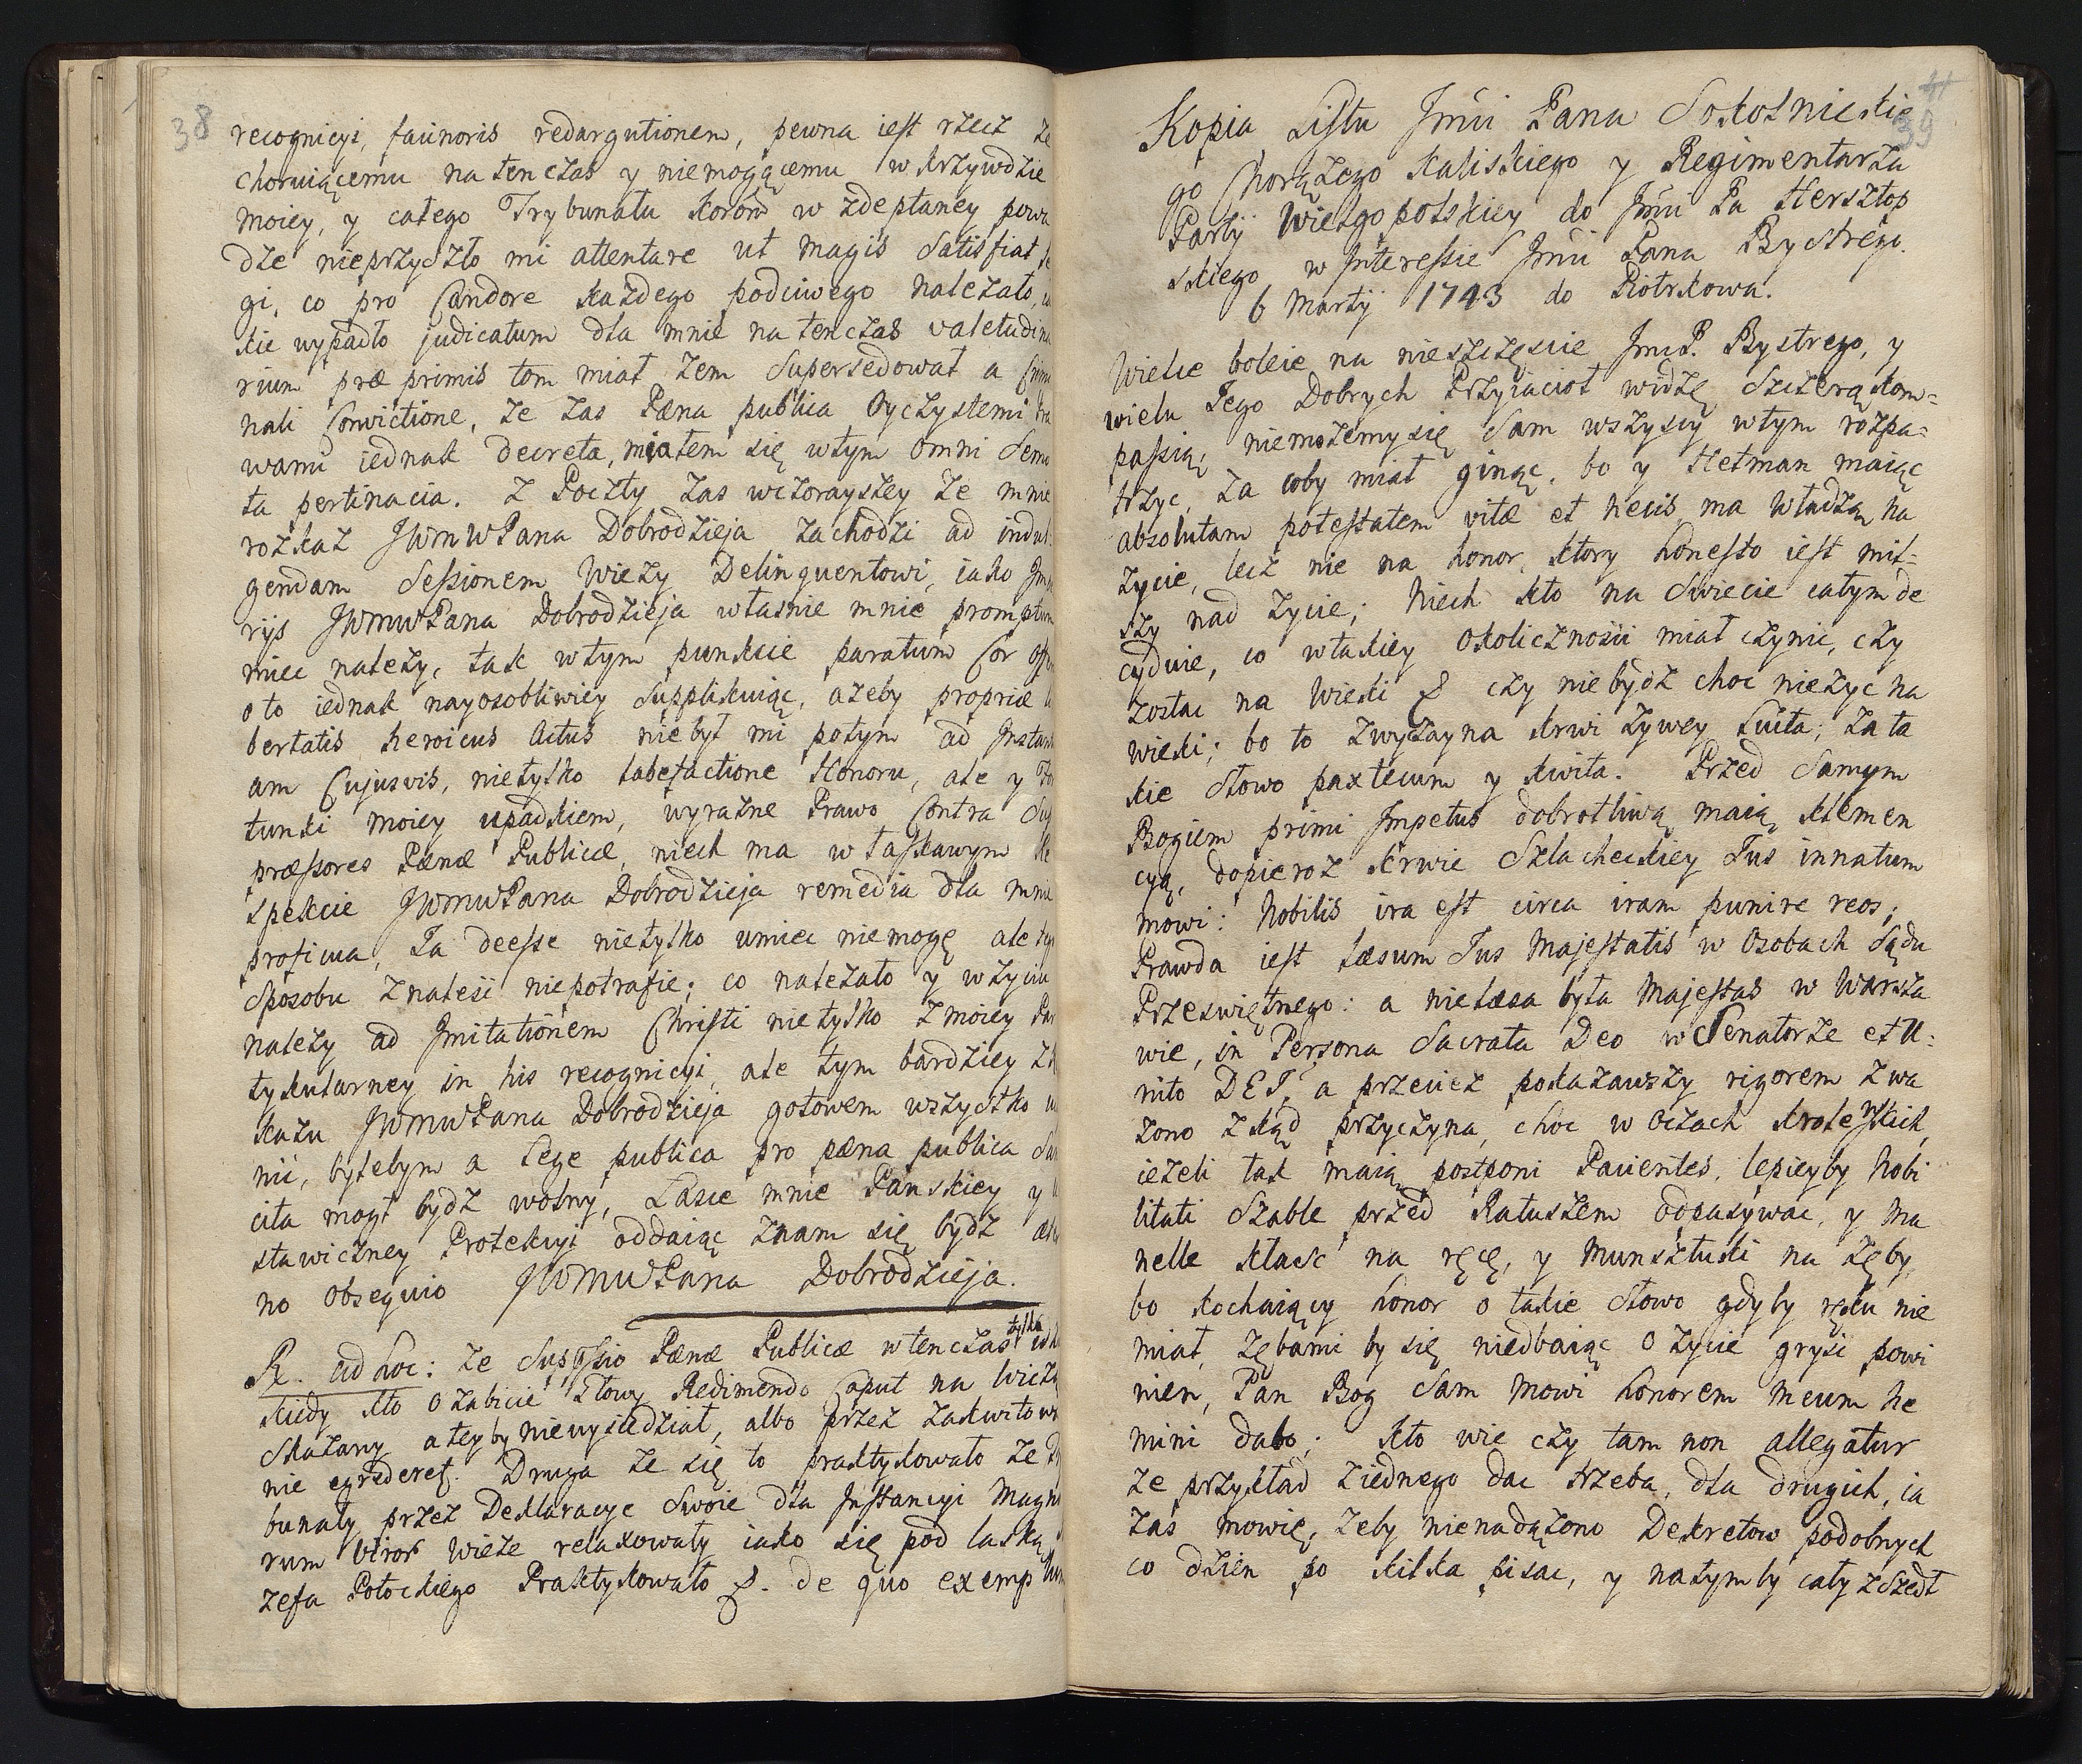 38
recognicyi, faunoris redargutionem, pewna iest rzecz ze
choruiącemu na tenczas y niemogącemu w krzywdzie
moiey, y całego Trybunału Koron w zdeptaney powa
dze nieprzyszło mi attentare ut magis Satisfiat
gi, co pro Candore każdego podciwego należało,
kie wypadło judicatum dla mnie na tenczas valetudina
rium præ primis tom miał żem Supersedował a Crimi
nali Convictione, że zas Pæna publica Oyczystemi
wami iednak decreta, miałem się w tym omni Semo
ta pertinacia. Z Poczty zas wczorayszey że mnie
rozkaz JWmWPana Dobrodzieja zachodzi ad indul
gendam Sessionem Wieży Delinquentowi, iako Impe
rijs JWmWPana Dobrodzieja własnie mnie promptum
miec należy, tak w tym punkcie paratum Cor
o to iednak nayosobliwiey Supplikuiąc, ażeby propriæ li
bertatis heroicus Actus nie był mi potym ad Instanti
am Cujusvis, nietylko labefactione Honoru, ale y For
tunki moiey upadkiem, wyrazne Prawo Contra Sup
præssores Pænæ Publicæ, niech ma w łaskawym Re
spekcie JWmWPana Dobrodzieja remedia dla mnie
proficua, Ja deesse nietylko umiec niemogę ale
Sposobu znalesć niepotrafie; co należało y w życiu
należy ad Imitationem Christi nietylko z moiey Par
tykularney in his recognicyi, ale tym bardziey z
kazu JWmWPana Dobrodzieja gotowem wszystko
nić, byłebym a Lege publica pro pæna publica San
cita mogł bydz wolny, Łasce mnie Panskiey y
stawiczney Protekcyi oddaiąc znam się bydz
no obsequio JWmWPana Dobrodzieja.
R. ad hoc: że Supressio Pænæ Publicæ wtenczas tylko
kiedy kto o zabicie Głowy Redimendo Caput na Wieżę
Skazany a teyby niewysiedział, albo przez zakwitowa
nie egrederet. Druga że się to praktykowało że Try
bunały przez Deklaracye Swoie dla Instancyi Magno
rum Viror Wieże relaxowały iako się pod laską
zefa Potockiego Praktykowało &. de quo exemplum
39
Kopia Listu Jmći Pana Sokolnickie
go Chorążego Kaliskiego y Regimentarza
Partÿ Wielgopolskiey do Jmći Pa Hersztop
skiego w Interessie Jmći Pana Bystrego.
6 Martÿ 1743 do Piotrkowa.
Wielce boleie na nieszczęscie JmcP. Bystrego, y
wielu Jego Dobrych Przyiacioł widzę Szczerą kom=
passią, niemożemy się Sam wszyscy wtym rozpa=
trzyc, za coby miał ginąc, bo y Hetman maiąc
absolutam potestatem vitæ et necis, ma władzą na
życie, lecz nie na honor, ktory honesto iest mil=
szy nad życie; Niech kto na Swiecie całym de
cyduie, co wtakiey okolicznosci miał czynic, czy
zostac na Wieki & czy niebydz choc nieżyc na
wieki; bo to zwyczayna krwi żywey Suita; za ta
kie Słowo pax tecum y kwita. Przed Samym
Bogiem primi Impetus dobrotliwą maią klemen
cyą, dopieroz krwie Szlacheckiey Jus innatum
mowi: Nobilis ira est circa iram punire reos;
Prawda iest læsum Jus Majestatis w Osobach Sądu
Przeswiętnego: a nielæsa była Majestas w Warsza
wie, in Persona Sacrata Deo w Senatorze et U=
nito DEI, a przeciez pokazawszy rigorem zwa
żono zkąd przyczyna, choc w Oczach Krolewskich,
ieżeli tak maią postponi Pacientes, lepieyby Nobi
litati Szable przed Ratuszem odpasywac, y Ma
nelle kłasc na ręcę, y Munsztuki na zęby,
bo kochaiący honor o takie Słowo gdyby ręku nie
miał, zębami by się niedbaiąc o życie grysc powi
nien, Pan Bog Sam mowi honorem meum ne
mini dabo; kto wie czy tam non allegatur
że przykład ziednego dac trzeba, dla drugich, ia
zas mowię, żeby nienadążono Dekretow podobnych
co dzien po kilka pisac, y natymby cały zszedł